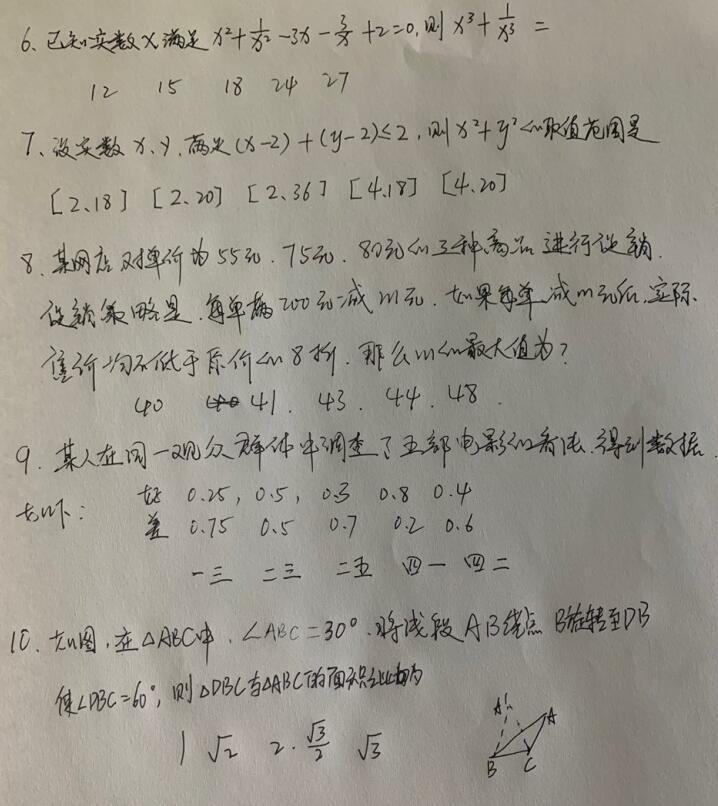 6、已知实数x满足 x²+1/x²-3x-3/x+2=0,则x³+1/x³ =
12 15 18 24 27
7、设实数x、y、满足(x-2)+(y-2)≤2,则x²+y²的取值范围是
[2、18] [2、20] [2、36] [4、18] [4、20]
8、某网店对单价为55元、75元、80元的三种商品进行促销.
促销策略是、每单满200元减m元、如果每单减m元后、实际
售价均不低于原价的8折、那么m的最大值为?
40 41、43、44、48、
9、某人在同一观众群体中调查了五部电影的看法、得到数据
如下: 好 0.25, 0.5, 0.3 0.8 0.4
差 0.75 0.5 0.7 0.2 0.6
一三 二三 二五 四一 四二
10、如图,在△ABC中、∠ABC=30°、将线段AB绕点B旋转至DB
使∠DBC=60°,则△DBC与△ABC的面积之比为
1 √2 2、√3/2 √3
A' A
B C